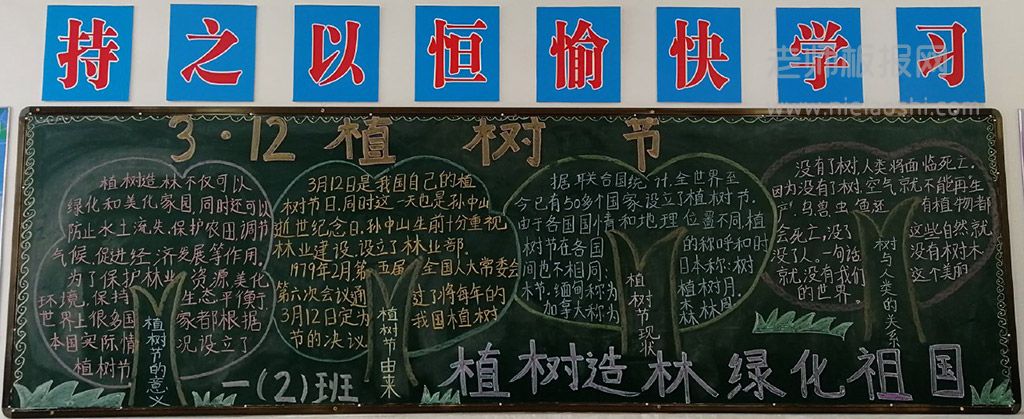 持之以恒愉快学习
老师板报网
www.nielaoshi.com
3·12植树节
植树造林不仅可以
绿化和美化家园,同时还可以
防止水土流失,保护农田,调节
气候,促进经济发展等作用。
为了保护林业资源,美化
环境,保持生态平衡,
世界上很多国家都根据
本国实际情况设立了
植树节
植树节的意义
3月12日是我国自己的植
树节日,同时这一天也是孙中山
逝世纪念日,孙中山生前十分重视
林业建设,设立了林业部.
1979年2月第五届全国人大常委会
第六次会议通过了将每年的
3月12日定为我国植树
节的决议
植树节由来
据联合国统计,全世界至
今已有50多个国家设立了植树节.
由于各国国情和地理位置不同,植
树节在各国的称呼和时
间也不相同:日本称:树
木节,缅甸称为植树月.
加拿大称为森林周
植树节现状
没有了树,人类将面临死亡.
因为没有了树,空气就不能再生
产,鸟、兽、虫、鱼还有植物都
会死亡,没了这些自然就
没了人。一句话没有树木
就没有我们这个美丽
的世界。
树与人类的关系
一(2)班
植树造林绿化祖国